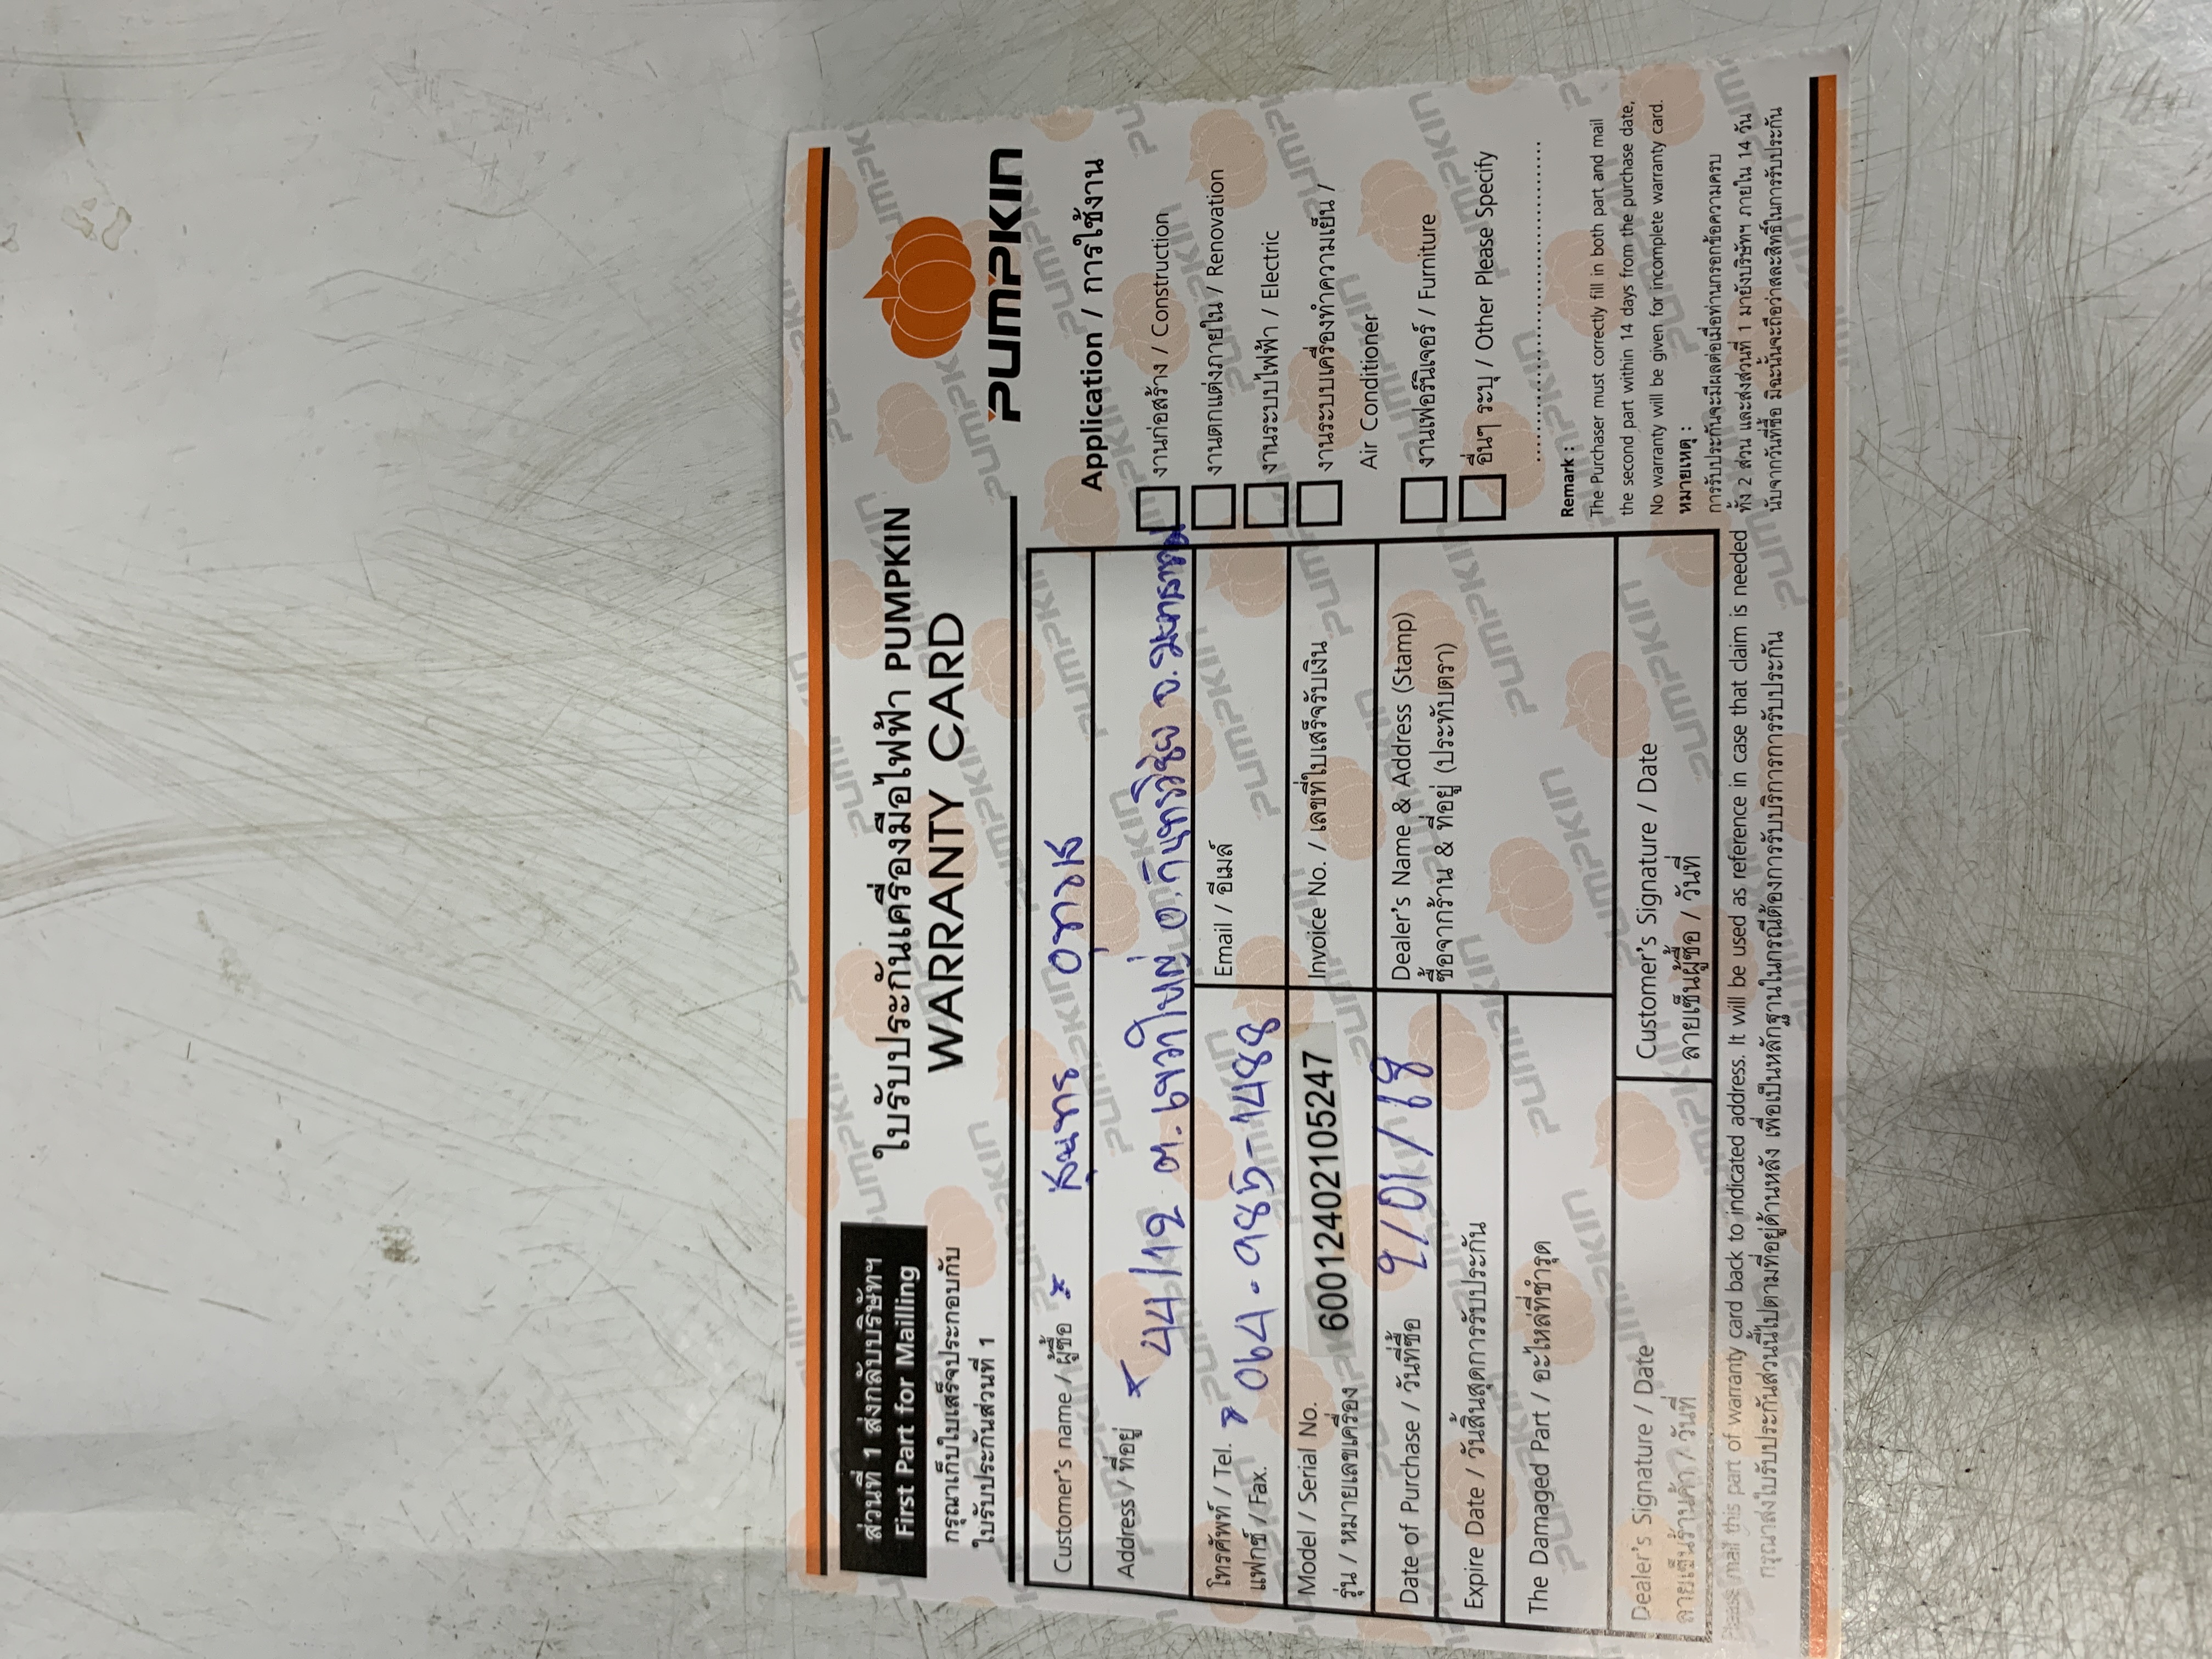 ส่วนที่ 1 ส่งกลับบริษัทฯ
First Part for Mailling
กรุณาเก็บใบเสร็จประกอบกับ
ใบรับประกันส่วนที่ 1
ใบรับประกันเครื่องมือไฟฟ้า PUMPKIN
WARRANTY CARD
PUMPKIN
Customer's name / ผู้ซื้อ x
Address / ที่อยู่ x 44/12 ต.เขวาใหญ่ อ.กันทรวิชัย จ.มหาสารคาม
โทรศัพท์ / Tel. x 064-985-1488
แฟกซ์ / Fax.
Email / อีเมล์
Model / Serial No. 60012402105247
รุ่น / หมายเลขเครื่อง
Invoice No. / เลขที่ใบเสร็จรับเงิน
Date of Purchase / วันที่ซื้อ
Dealer's Name & Address (Stamp)
ซื้อจากร้าน & ที่อยู่ (ประทับตรา)
Expire Date / วันสิ้นสุดการรับประกัน
The Damaged Part / อะไหล่ที่ชำรุด
Dealer's Signature / Date
ลายเซ็นร้านค้า / วันที่
Customer's Signature / Date
ลายเซ็นผู้ซื้อ / วันที่
Application / การใช้งาน
งานก่อสร้าง / Construction
งานตกแต่งภายใน / Renovation
งานระบบไฟฟ้า / Electric
งานระบบเครื่องทำความเย็น /
Air Conditioner
งานเฟอร์นิเจอร์ / Furniture
อื่นๆ ระบุ / Other Please Specify
Remark :
The Purchaser must correctly fill in both part and mail
the second part within 14 days from the purchase date,
No warranty will be given for incomplete warranty card.
หมายเหตุ :
การรับประกันจะมีผลต่อเมื่อท่านกรอกข้อความครบ
ทั้ง 2 ส่วน และส่งส่วนที่ 1 มายังบริษัทฯ ภายใน 14 วัน
นับจากวันที่ซื้อ มิฉะนั้นจะถือว่าสละสิทธิ์ในการรับประกัน
Please mail this part of warranty card back to indicated address. It will be used as reference in case that claim is needed
กรุณาส่งใบรับประกันส่วนนี้ไปตามที่อยู่ด้านหลัง เพื่อเป็นหลักฐานในกรณีต้องการรับบริการการรับประกัน